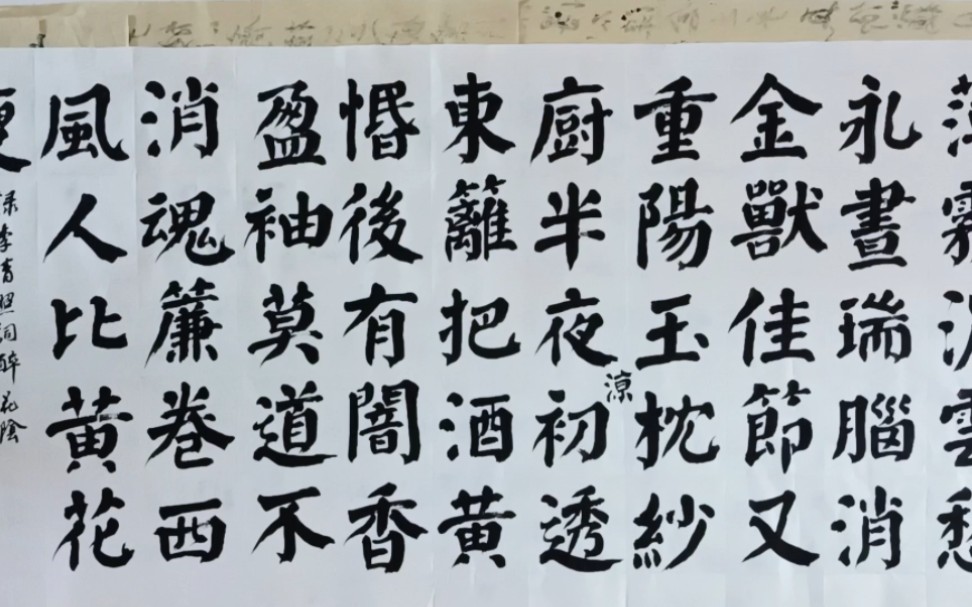 薄霧雲愁
永晝瑞腦消
金獸佳節又
重陽玉枕紗
廚半夜涼初透
東籬把酒黃
惛後有闇香
盈袖莫道不
消魂簾卷西
風人比黃花
李清照詞醉花陰